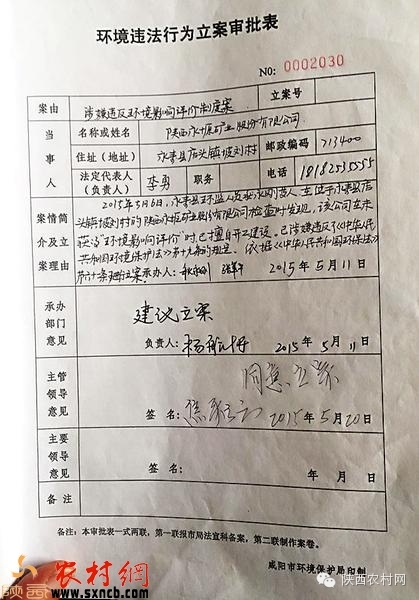 环境违法行为立案审批表
NO: 0002030
案由 涉嫌违反环境影响评价制度案 立案号
当事人 名称或姓名 陕西永坡矿业股份有限公司
住址（地址） 永寿县店头镇坡刘村 邮政编码 713400
法定代表人（负责人） 李勇 职务 电话 18182535555
案情简介及立案理由
2015年5月6日，永寿县环
店
头镇坡刘村的陕西永坡矿业股份有限公司检查时发现，该公司在未
获得"环境影响评价"时，已擅自开工建设。已涉嫌违反了《中华人民
共和国环境保护法》第十九条的规定。依据《中华人民共和国环保法》
第六十条 承办人： 2015年5月11日
承办部门意见
建议立案
负责人： 2015年5月11日
主管领导意见
同意立案
签名： 2015年5月20日
主要领导意见
签名： 年 月 日
备注
备注：本审批表一式两联，第一联报市局法宣科备案，第二联制作案卷。
咸阳市环境保护局印制
陕西农村网
陕西
农村網
www.sxncb.com